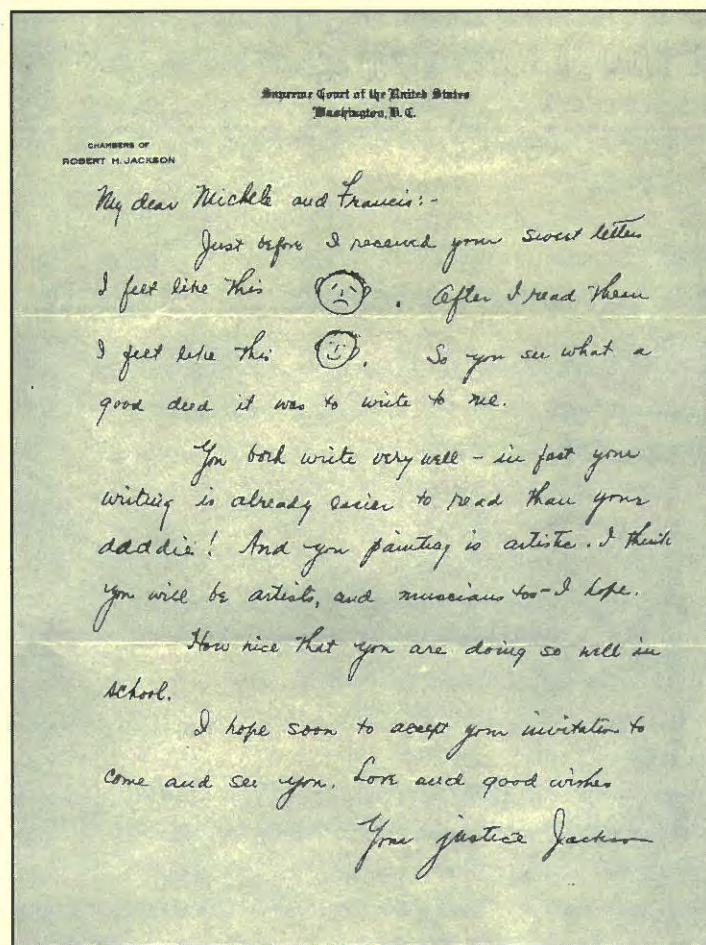 Supreme Court of the United States
Washington, D.C.
CHAMBERS OF
ROBERT H. JACKSON
My dear Michele and Francis:-
Just before I received your sweet letters
I felt like this . After I read them
I felt like this . So you see what a
good deed it was to write to me.
You both write very well - in fact your
writing is already easier to read than your
dadddie! And you painting is artistic. I think
you will be artists, and muscians too - I hope.
How nice that you are doing so well in
school.
I hope soon to accept your invitation to
come and see you. Love and good wishes
Your justice Jackson